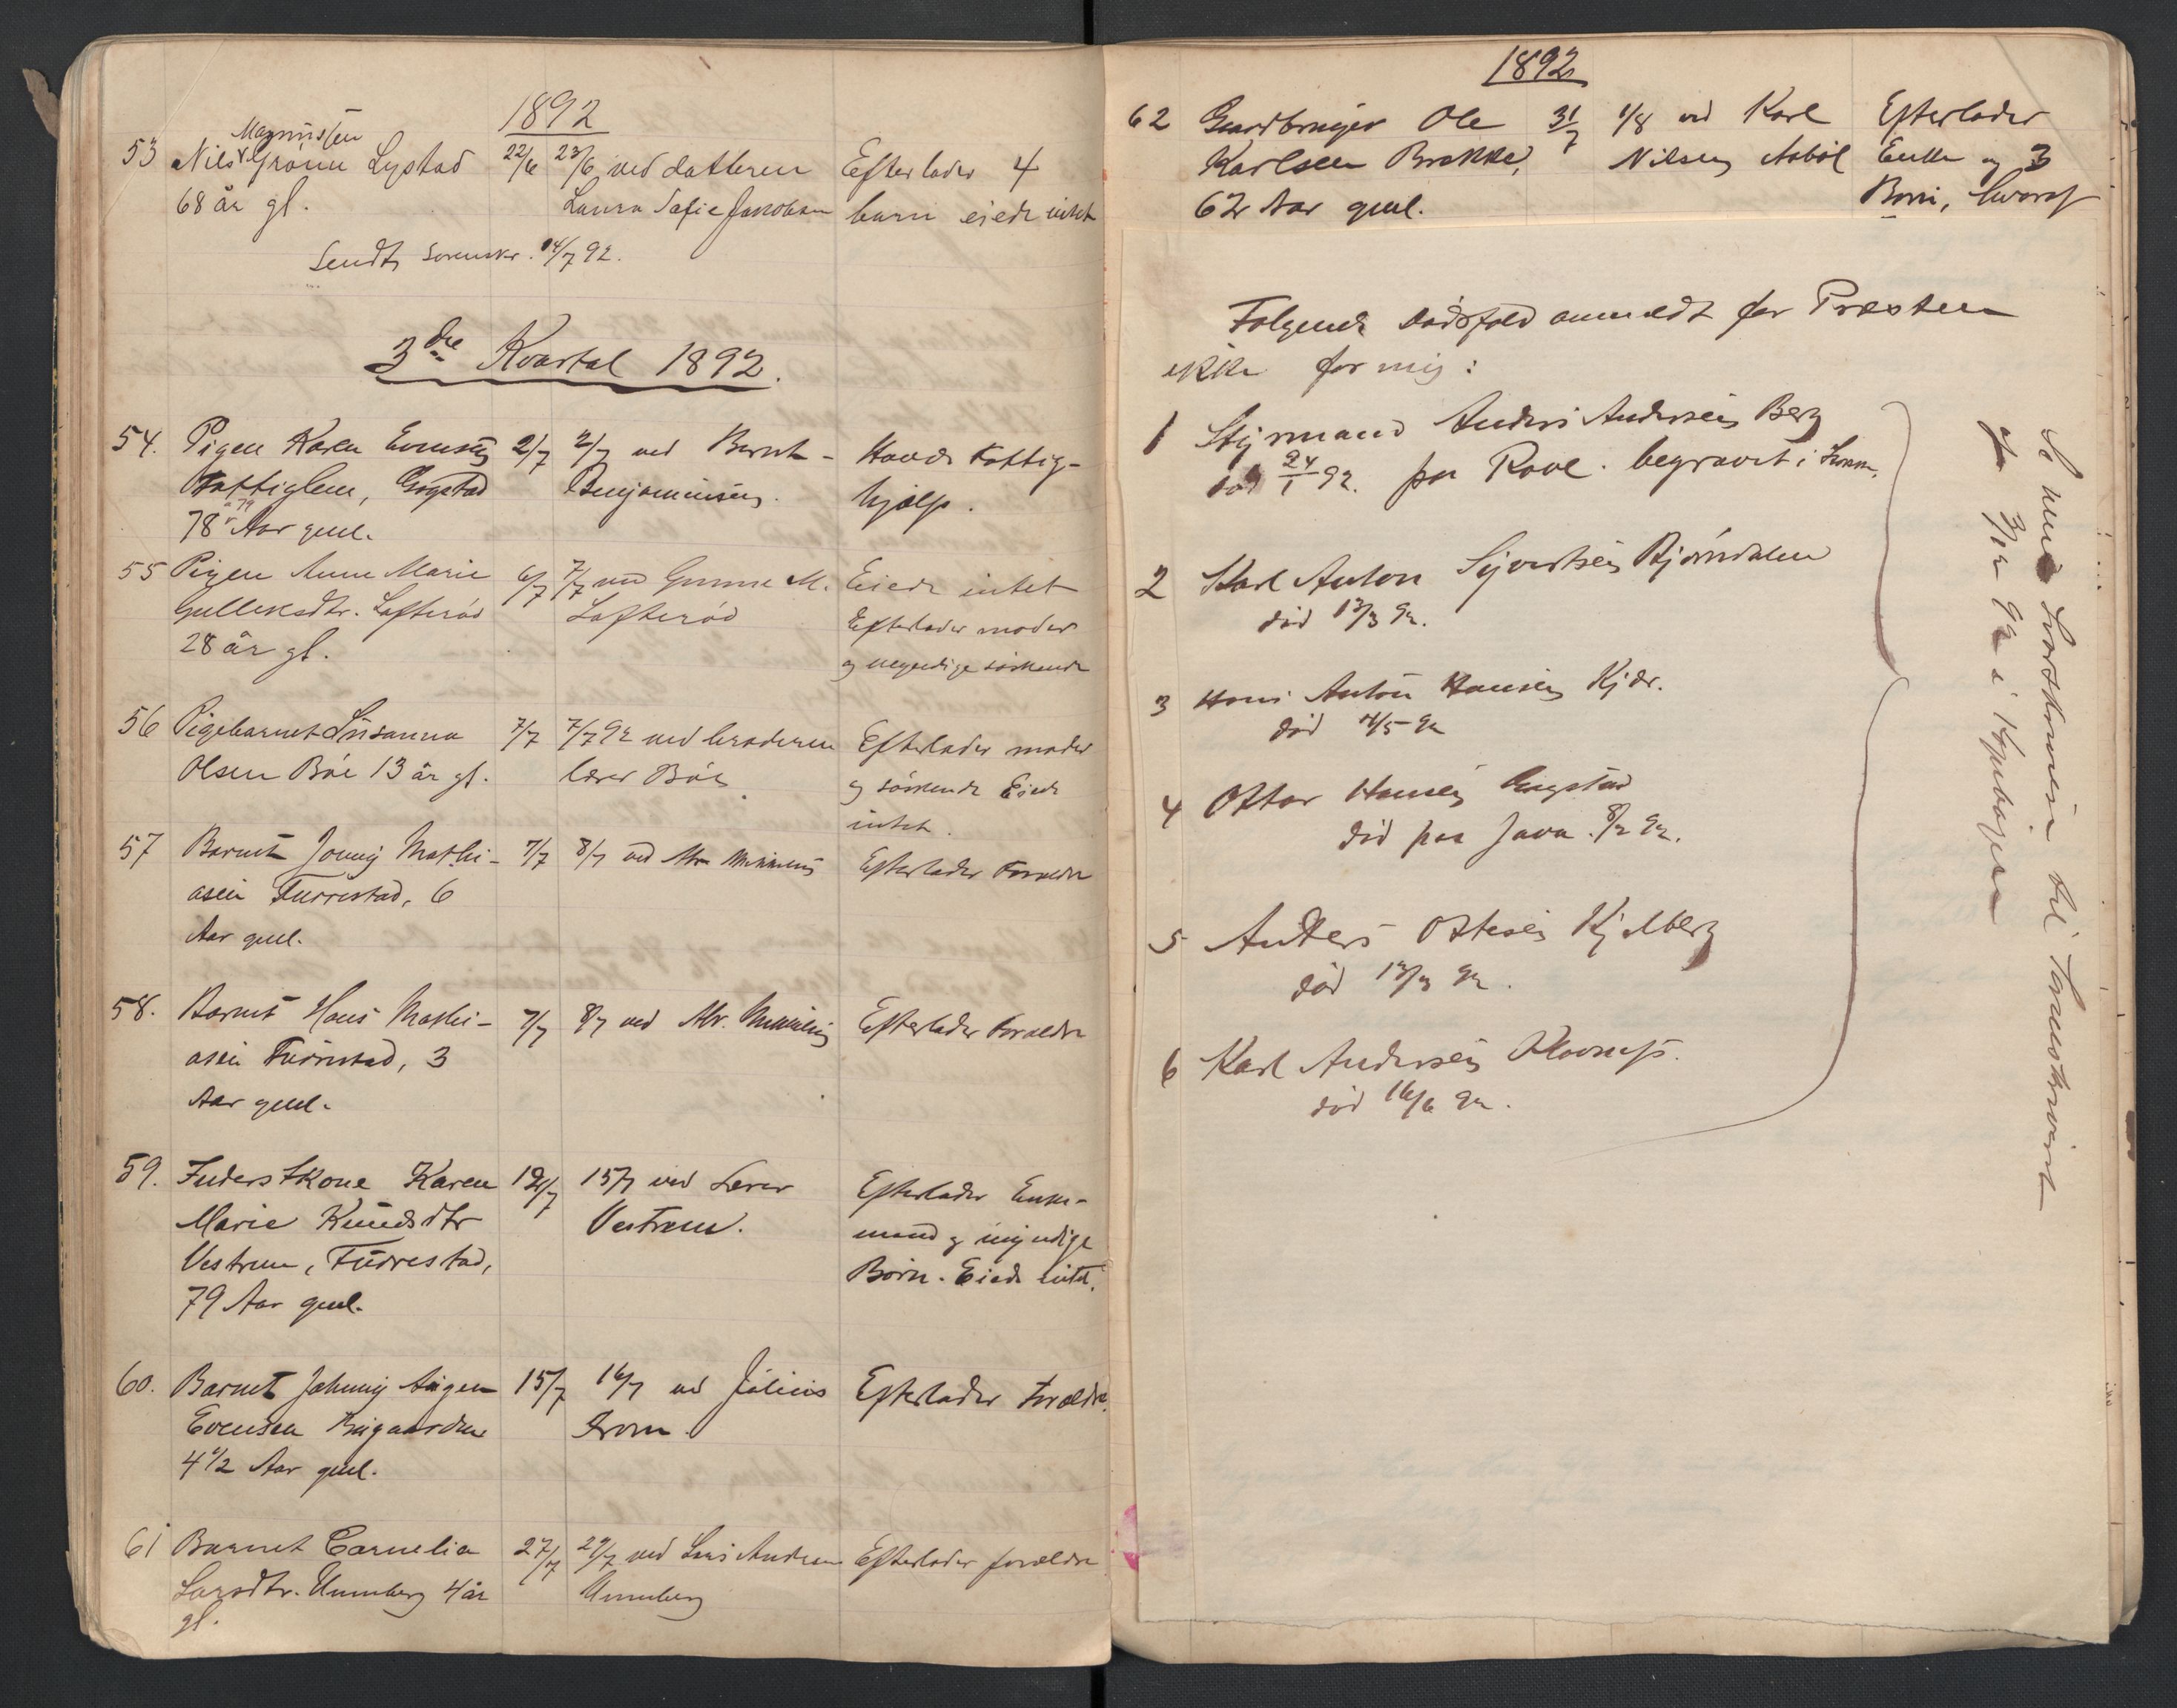 1892
53 Magnussen
Nils Grönn Lystad 22/6 23/6 ved datteren Efterlader 4
68 år gl. Laura Sofie Jakobsen barn eiede intet
Sendt Sorenskr. 14/7 92.
3die Kvartal 1892.
54. Pigen Karen Evensen 2/7 2/7 ved Bernt Havde Fattig-
Fattiglem, Gogstad Benjaminsen. hjælp.
79
78 Aar gml.
55 Pigen Anne Marie 6/7 7/7 ved Gunne M. Eiede intet
Gulliksdtr. Lofterød Lofterød Efterlader moder
28 år gl. og myndige söskende
56 Pigebarnet Susanna 7/7 7/7 92 ved broderen Efterlader moder
Olsen Böe 13 år gl. lærer Böe og söskende Eiede
intet.
57 Barnet Jonny Mathi- 7/7 8/7 ved Efterlader Forældre
asen Furrestad, 6
Aar gml.
58. Barnet Hans Mathi- 7/7 8/7 ved Efterlader Forældre
asen Furrestad, 3
Aar gml.
59. Inderstkone Karen 12/7 15/7 ved Lærer Efterlader Enke-
Marie Knudsdtr Vestrum. mand og myndige
Vestrum, Furrestad, Börn. Eiede intet.
79 Aar gml.
60. Barnet Johnny Aagen 15/7 16/7 ved Julius Efterlader Forældre.
Evensen Bugaarden From.
4 1/2 Aar gml.
61 Barnet Cornelia 27/7 29/7 ved Lars Andersen Efterlader forældre
Larsdtr. Unneberg 4 år Unneberg
gl.
1892
62 Gaardbruger Ole 31/7 1/8 ved Karl Efterlader
Karlsen Brekke, Nilsen Aabøl Enke og 3
62 Aar gml. Börn,
Følgende Dødsfald anmeldt for Præsten
ikke for mig:
1 Styrmand Anders Andersen Berg
død 24/1 92. paa Rave. begravet i
2 Karl Anton Syvertsen Bjørndalen
död 13/3 92.
3 Hans Anton Hansen Kjær.
död 4/5 92
4 Ottar Hansen Gogstad
död paa Java. 8/2 92.
5 Anders Ottesen Kjelberg
död 13/3 92.
6 Karl Andersen
död 16/6 92.
Se min Forskrivning til Sorenskriveren
af 3/12 92 i Kopiebogen